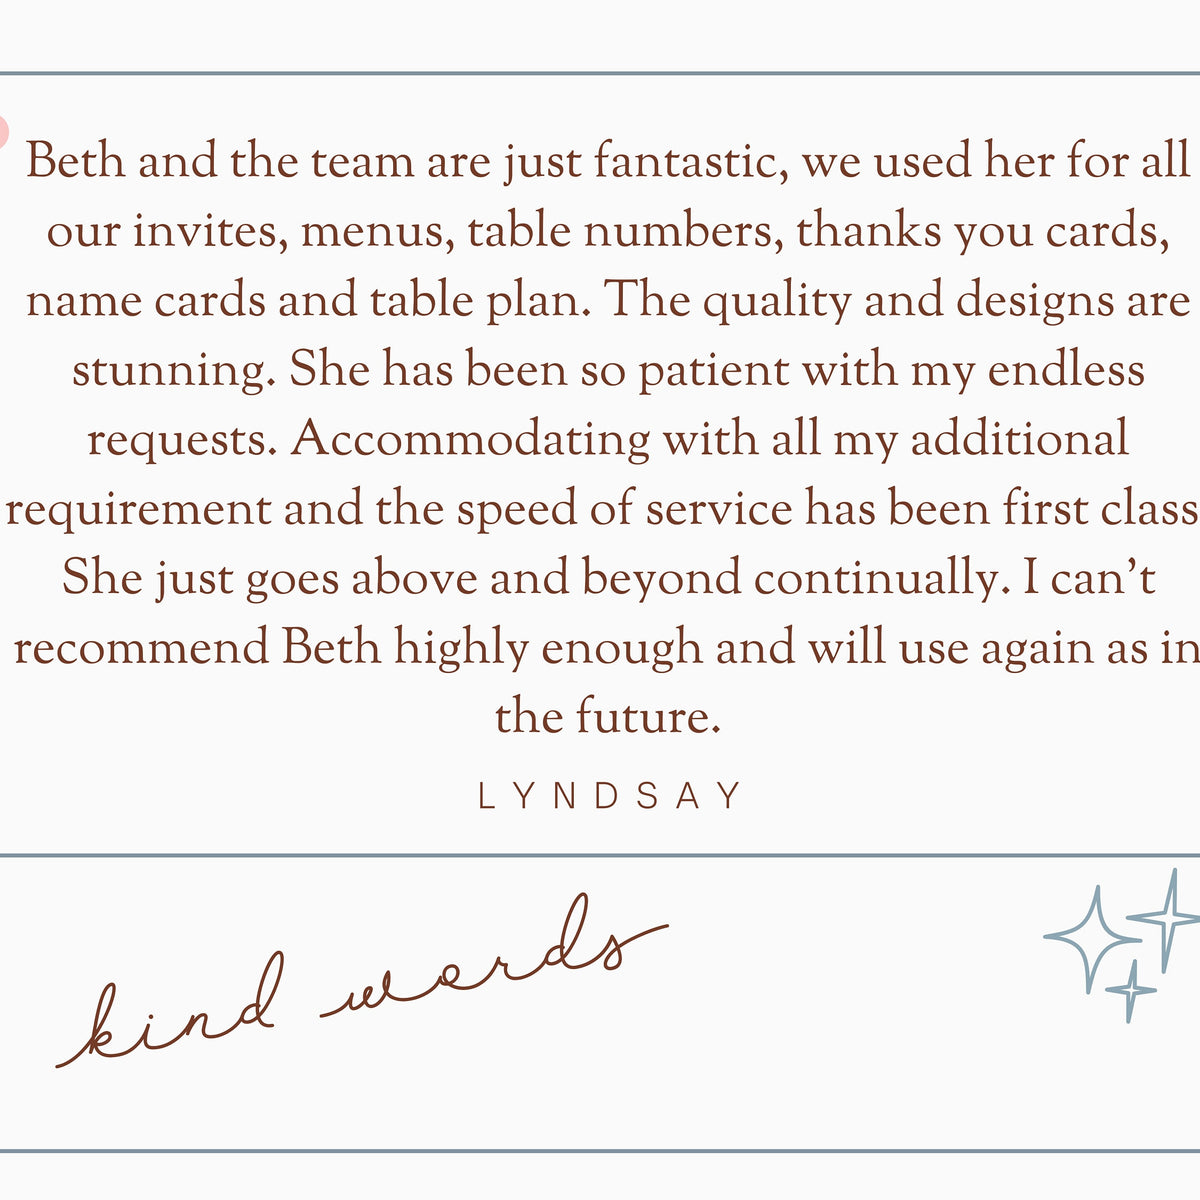 Beth and the team are just fantastic, we used her for all
our invites, menus, table numbers, thanks you cards,
name cards and table plan. The quality and designs are
stunning. She has been so patient with my endless
requests. Accommodating with all my additional
requirement and the speed of service has been first class
She just goes above and beyond continually. I can’t
recommend Beth highly enough and will use again as in
the future.
LYNDSAY
kind words